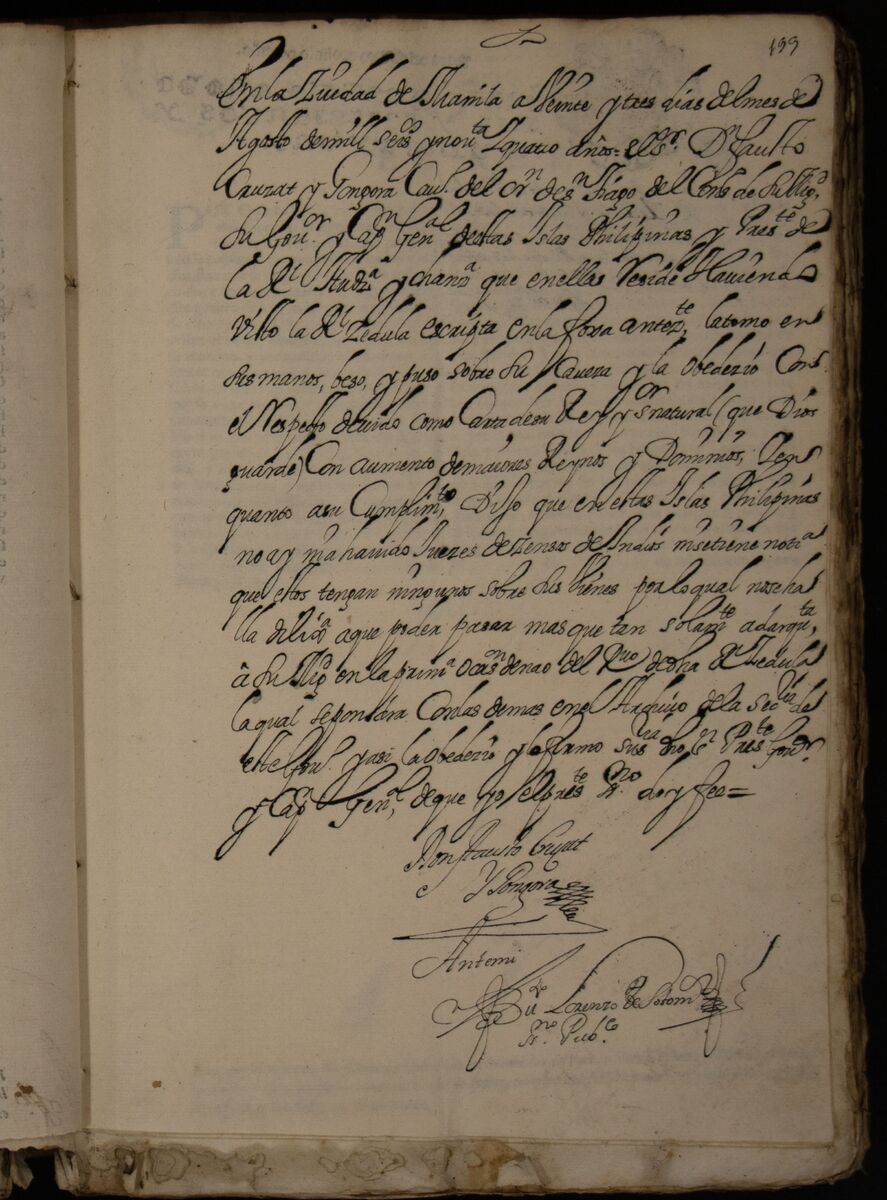 133
En la Ziudad de Manila a Veinte y tres dias del mes de
Agosto de mill seisos y nouta y quatro años = el sr. Dn fausto
Cruzat y Gongora Cauo. del orn de sn tiago del Consº de su Magd.
su Gour. y Capn Genal destas Islas Philipinas y Preste de
la Rl Audza y chanza que en ellas Reside Haviendo
visto la Rl Zedula escripta en la foxa antezte, la tomo en
sus manos, beso, y puso sobre su Caveza y la obedezio Con
el Respecto devido como Carta de su Rey y sor natural (que Dios
guarde) Con aumento de maiores Reynos y Dominios, Y en
quanto a su Cumplimto, Dijo que en estas Islas Philipinas
no ay ni a havido Juezes de Zensos de Indios ni se tiene notia
que estos tengan ningunos sobre sus Vienes por lo qual no se ha
lla dilixa a que poder pasar mas que tan solamte a dar quta,
â su Magd en la prima ocasn de nao del Rvo de dha Rl Zedula
la qual se pondra Con las demas en el Archivo de la Secria de
este Gouo. y asi la obedezio y lo firmo su sria dho sr Preste Gouor.
y Capn Genal, de que yo el preste srno doy fee =
Don fausto Cruzat
Y Gongora
Antemi
Lorenzo de
srno Pubco.